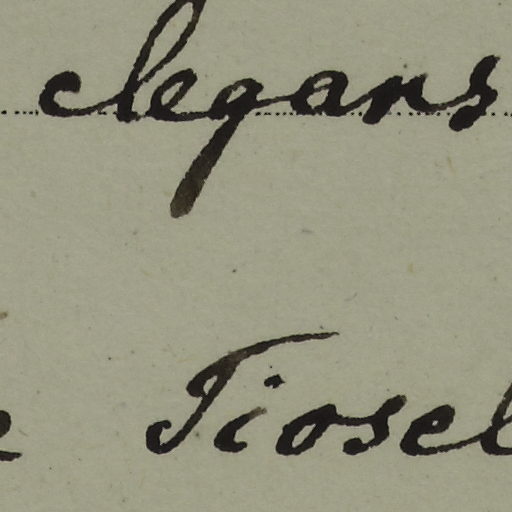 elegans
Tiosel